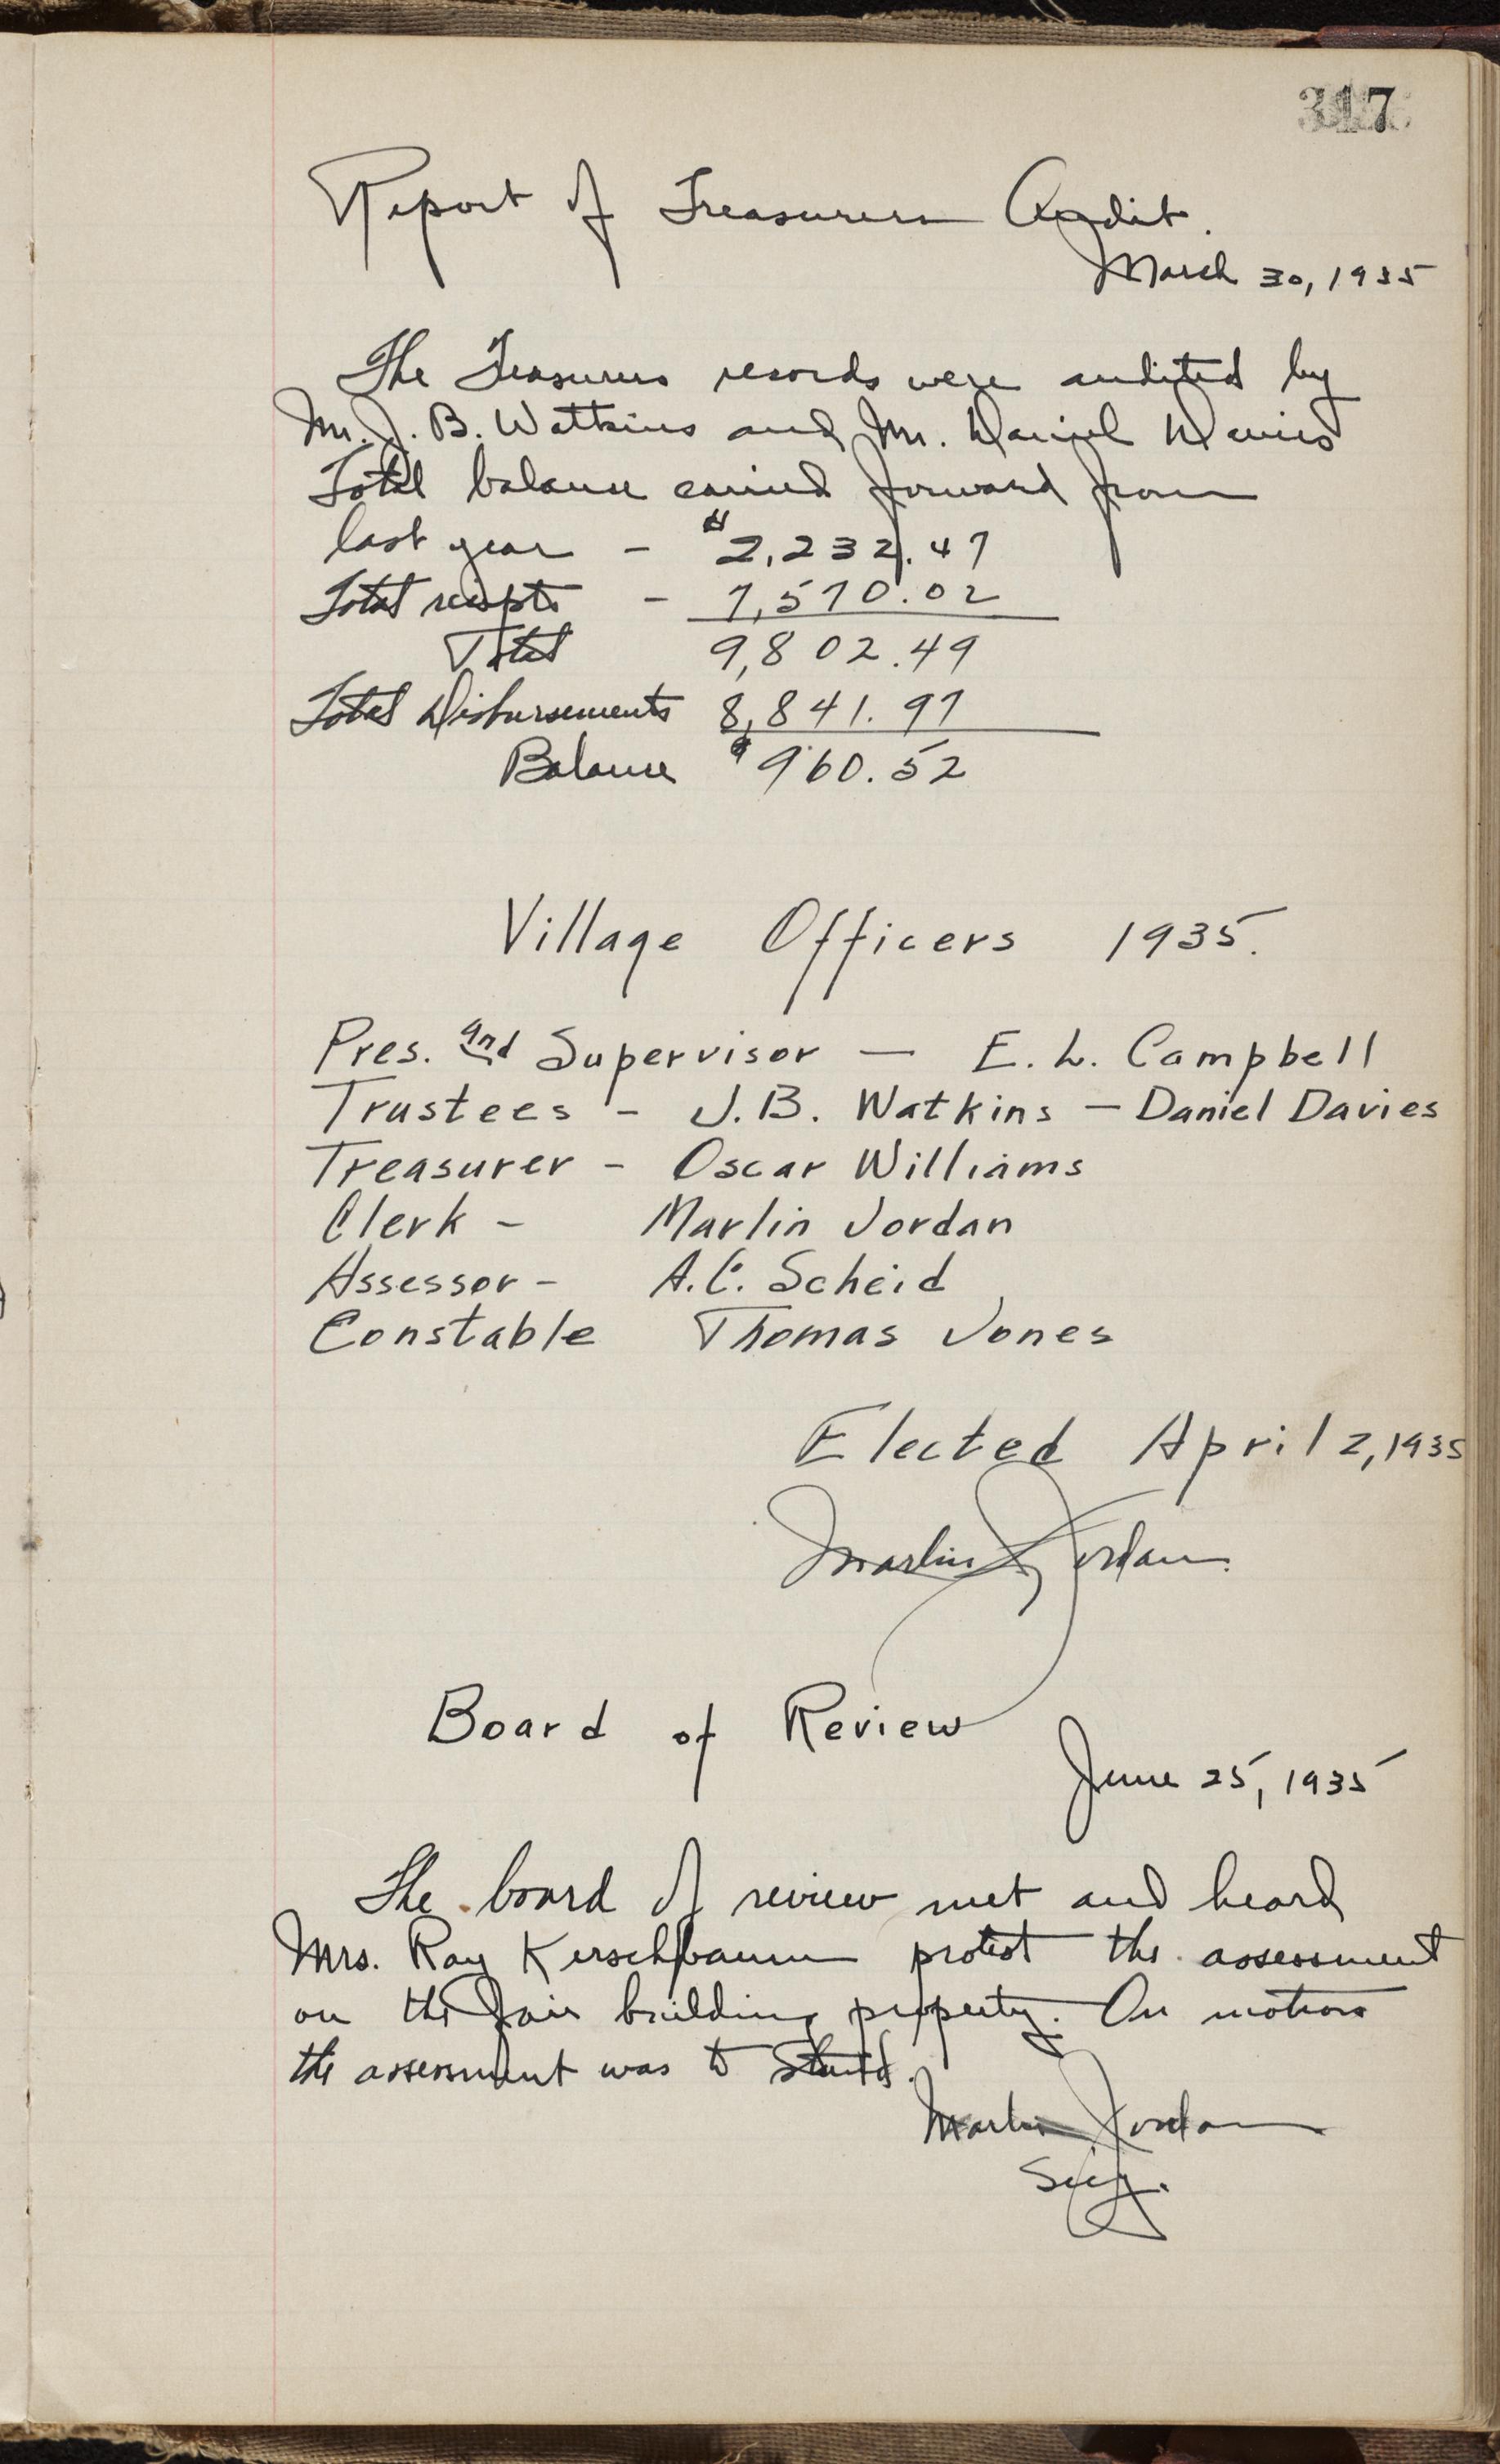 317
Report of Treasurers Audit.
March 30, 1935
The Treasurers records were audited by
Mr. J. B. Watkins and Mr. Daniel Davies
Total balance carried forward from
last year - $2,232.47
Total receipts - 7,570.02
Total 9,802.49
Total Disbursements 8,841.97
Balance $960.52
Village Officers 1935.
Pres. and Supervisor — E. L. Campbell
Trustees - J. B. Watkins — Daniel Davies
Treasurer - Oscar Williams
Clerk - Marlin Jordan
Assessor - A. C. Scheid
Constable Thomas Jones
Elected April 2, 1935
Marlin Jordan
Board of Review
June 25, 1935
The board of review met and heard
Mrs. Ray Kerschbaum protest the assessment
on the Fair building property. On motion
the assessment was to stand.
Marlin Jordan
Secy.